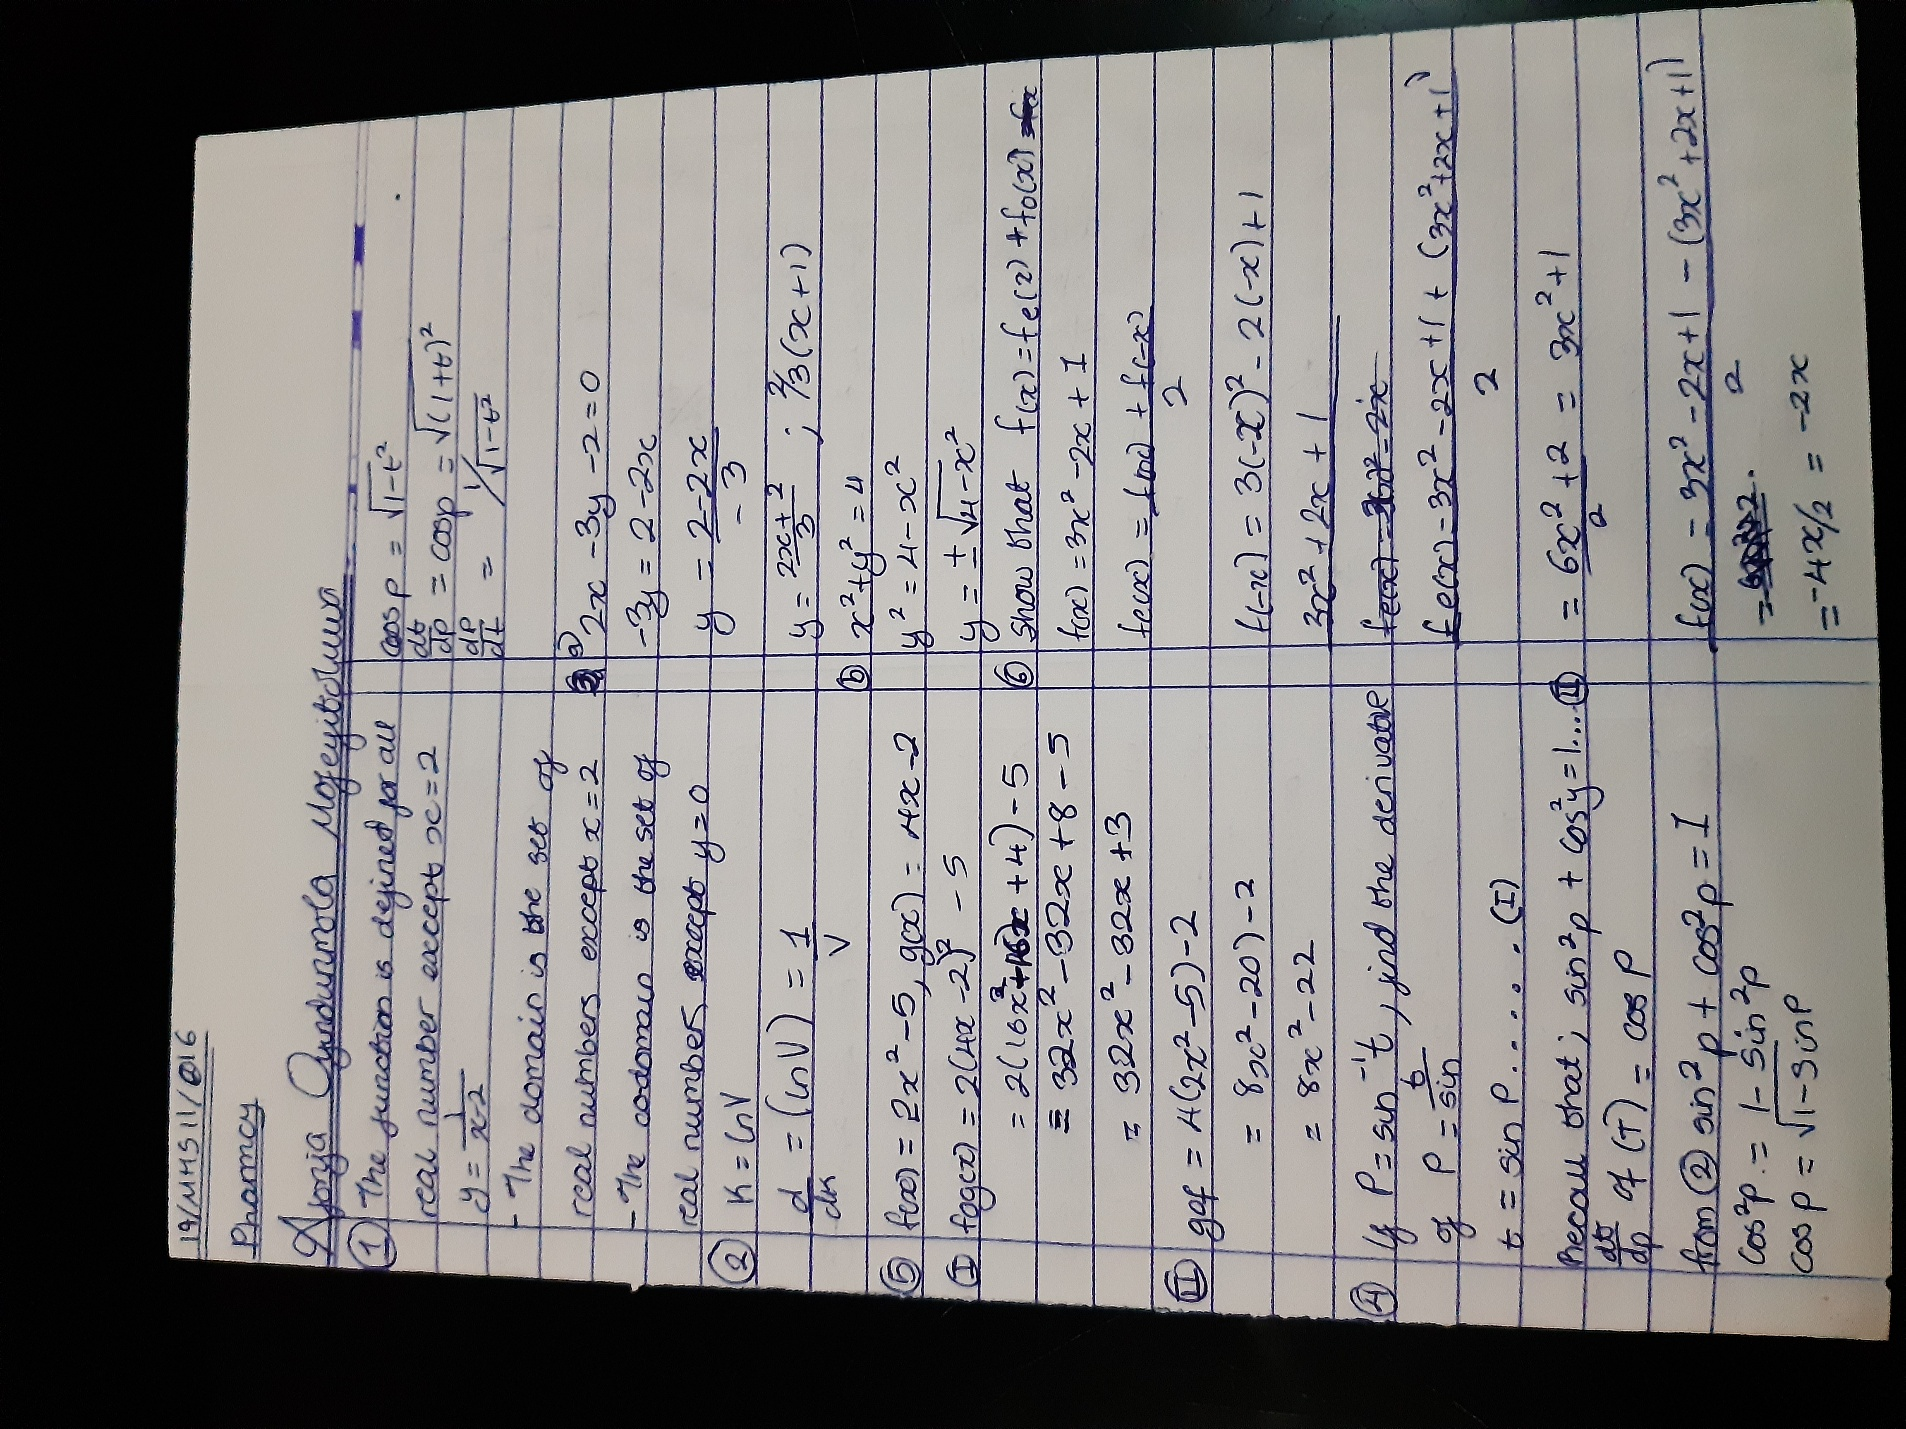 19/MHS11/016
Pharmcy
Ajorja Oyindunmola Mofeyitoluwa
① The function is defined for all
real number except x=2
y = 1/x-2
- The domain is the set of
real numbers except x=2
- The codomain is the set of
real number, except y=0
② K = lnV
d/dK = (lnV) = 1/V
⑤ f(x) = 2x² - 5, g(x) = 4x-2
Ⓘ fog(x) = 2(4x-2)² - 5
= 2(16x²+16x+4) - 5
= 32x² - 32x + 8 - 5
= 32x² - 32x + 3
Ⓘ Ⓘ gof = 4(2x²-5) - 2
= 8x² - 20) - 2
= 8x² - 22
④ If P = sin⁻¹t, find the derivative
of P = t/sin
t = sin P ....... (I)
Recall that; sin²p + cos²y = 1... Ⓘ Ⓘ
dt/dp of (T) = cos P
from ② sin²p + cos²p = 1
cos²p. = 1 - sin²p
cos p = √1-sinp
cos p = √1-t²
dt/dp = cosp = √(1+t)²
dp/dt = 1/√1-t²
③ a) 2x - 3y - 2 = 0
-3y = 2 - 2x
y = 2-2x/-3
y = 2x+2/3 ; 2/3(x+1)
ⓑ x²+y² = 4
y² = 4 - x²
y = ±√4-x²
⑥ Show that f(x) = fe(2) + fo(x)
f(x) = 3x² - 2x + 1
fe(x) = f(x) + f(-x)/2
f(-x) = 3(-x)² - 2(-x) + 1
3x² + 2x + 1
fe(x) = 3x² - 2x + 1 + (3x²+2x+1)/2
= 6x²+2/2 = 3x²+1
f(x) - 3x² - 2x+1 - (3x²+2x+1)/2
= -4x/2 = -2x